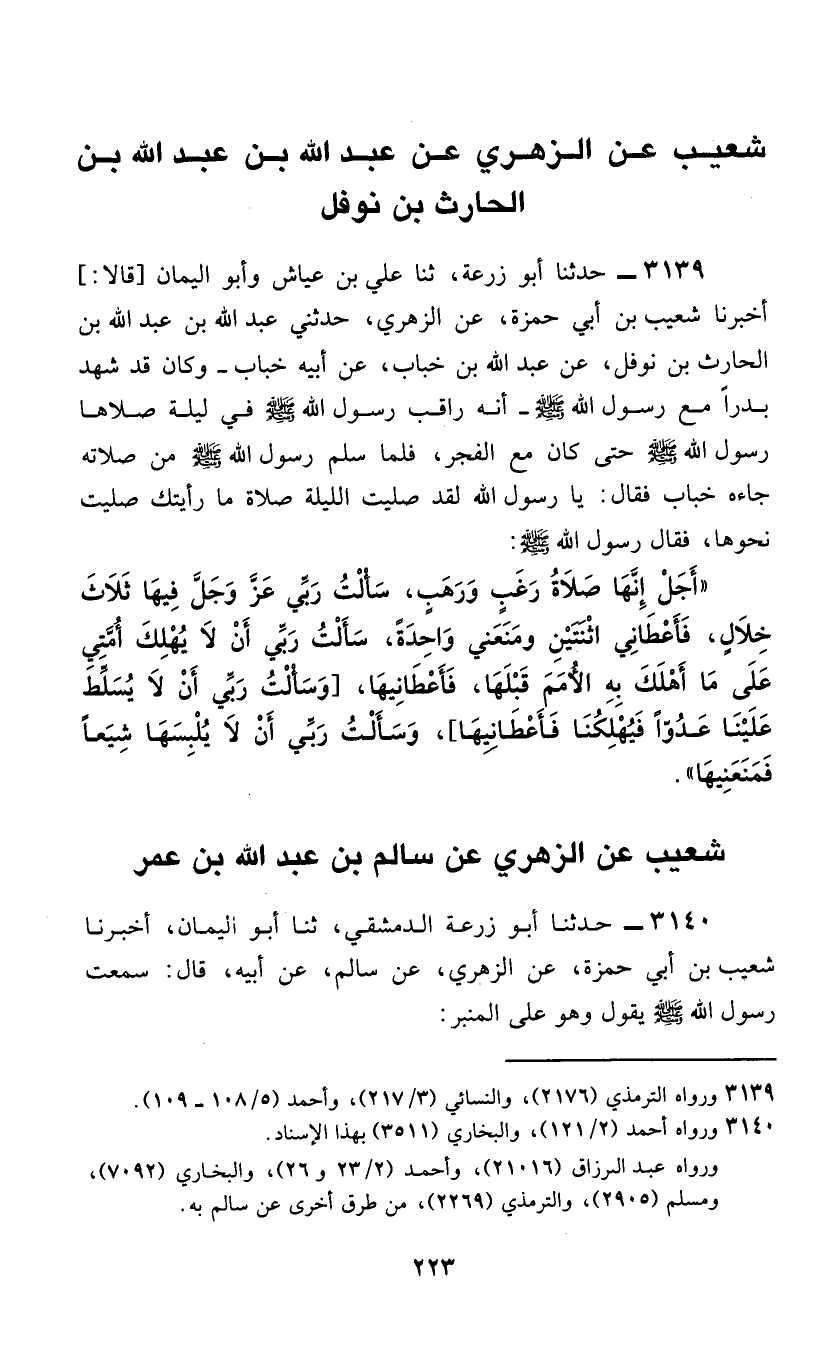 شعيب عن الزهري عن عبد الله بن عبد الله بن
الحارث بن نوفل
٣١٣٩ ـ حدثنا أبو زرعة، ثنا علي بن عياش وأبو اليمان [قالا:]
أخبرنا شعيب بن أبي حمزة، عن الزهري، حدثني عبد الله بن عبد الله بن
الحارث بن نوفل، عن عبد الله بن خباب، عن أبيه خباب ـ وكان قد شهد
بدراً مع رسول الله ﷺ ـ أنه راقب رسول الله ﷺ في ليلة صلاها
رسول الله ﷺ حتى كان مع الفجر، فلما سلم رسول الله ﷺ من صلاته
جاءه خباب فقال: يا رسول الله لقد صليت الليلة صلاة ما رأيتك صليت
نحوها، فقال رسول الله ﷺ:
«أَجَلْ إِنَّهَا صَلَاةُ رَغَبٍ وَرَهَبٍ، سَأَلْتُ رَبِّي عَزَّ وَجَلَّ فِيهَا ثَلَاثَ
خِلَالٍ، فَأَعْطَانِي اثْنَتَيْنِ ومَنَعَني وَاحِدَةً، سَأَلْتُ رَبِّي أَنْ لَا يُهْلِكَ أُمَّتِي
عَلَى مَا أَهْلَكَ بِهِ الأُمَمَ قَبْلَهَا، فَأَعْطَانِيهَا، [وَسَأَلْتُ رَبِّي أَنْ لَا يُسَلِّطَ
عَلَيْنَا عَدُوّاً فَيُهْلِكُنَا فَأَعْطَانِيهَا]، وَسَأَلْتُ رَبِّي أَنْ لَا يُلْبِسَهَا شِيَعاً
فَمَنَعَنِيهَا».
شعيب عن الزهري عن سالم بن عبد الله بن عمر
٣١٤٠ ـ حدثنا أبو زرعة الدمشقي، ثنا أبو اليمان، أخبرنا
شعيب بن أبي حمزة، عن الزهري، عن سالم، عن أبيه، قال: سمعت
رسول الله ﷺ يقول وهو على المنبر:
٣١٣٩ ورواه الترمذي (٢١٧٦)، والنسائي (٢١٧/٣)، وأحمد (١٠٨/٥ ـ ١٠٩).
٣١٤٠ ورواه أحمد (١٢١/٢)، والبخاري (٣٥١١) بهذا الإسناد.
ورواه عبد الرزاق (٢١٠١٦)، وأحمد (٢٣/٢ و ٢٦)، والبخاري (٧٠٩٢)،
ومسلم (٢٩٠٥)، والترمذي (٢٢٦٩)، من طرق أخرى عن سالم به.
٢٢٣